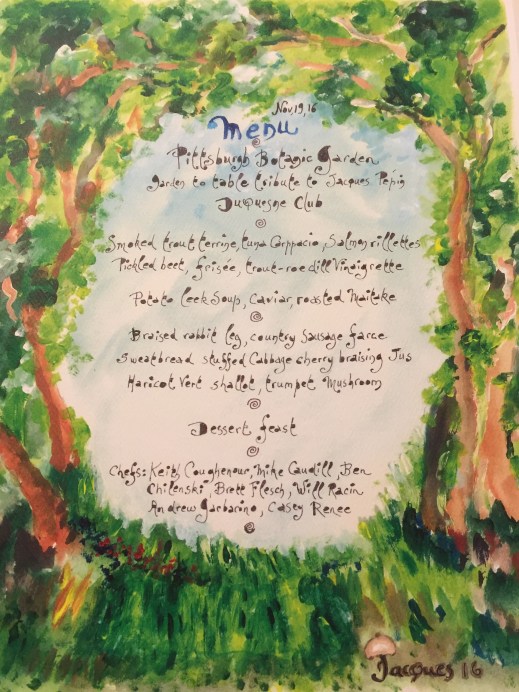 Nov,19,16
Menu
Pittsburgh Botanic Garden
Garden to table tribute to Jacques Pépin
Duquesne Club
Smoked trout terrine, tuna Carppacio, Salmon rillettes
Pickled beet, frisée, trout-roe dill Vinaigrette
Potato leek Soup, Caviar, roasted Maitake
Braised rabbit leg, country Sausage farce
Sweatbread stuffed Cabbage cherry braising Jus
Haricot Vert shallot, trumpet Mushroom
Dessert feast
Chefs: Keith Coughenour, Mike Caudill, Ben
Chilenski Brett Flesch, Will Racin
Andrew Garbarino, Casey Renee
Jacques 16